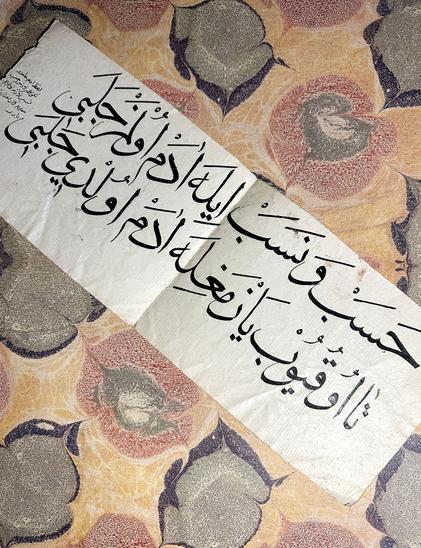 حَسَبْ وَ نَسَبْ ايلَه اٰدَمْ اوُلْمَزْ جَلَبي
تا اوُقُيوُبْ يَازْمَغِلَه اٰدَمْ اوُلْدِي جَلَبي